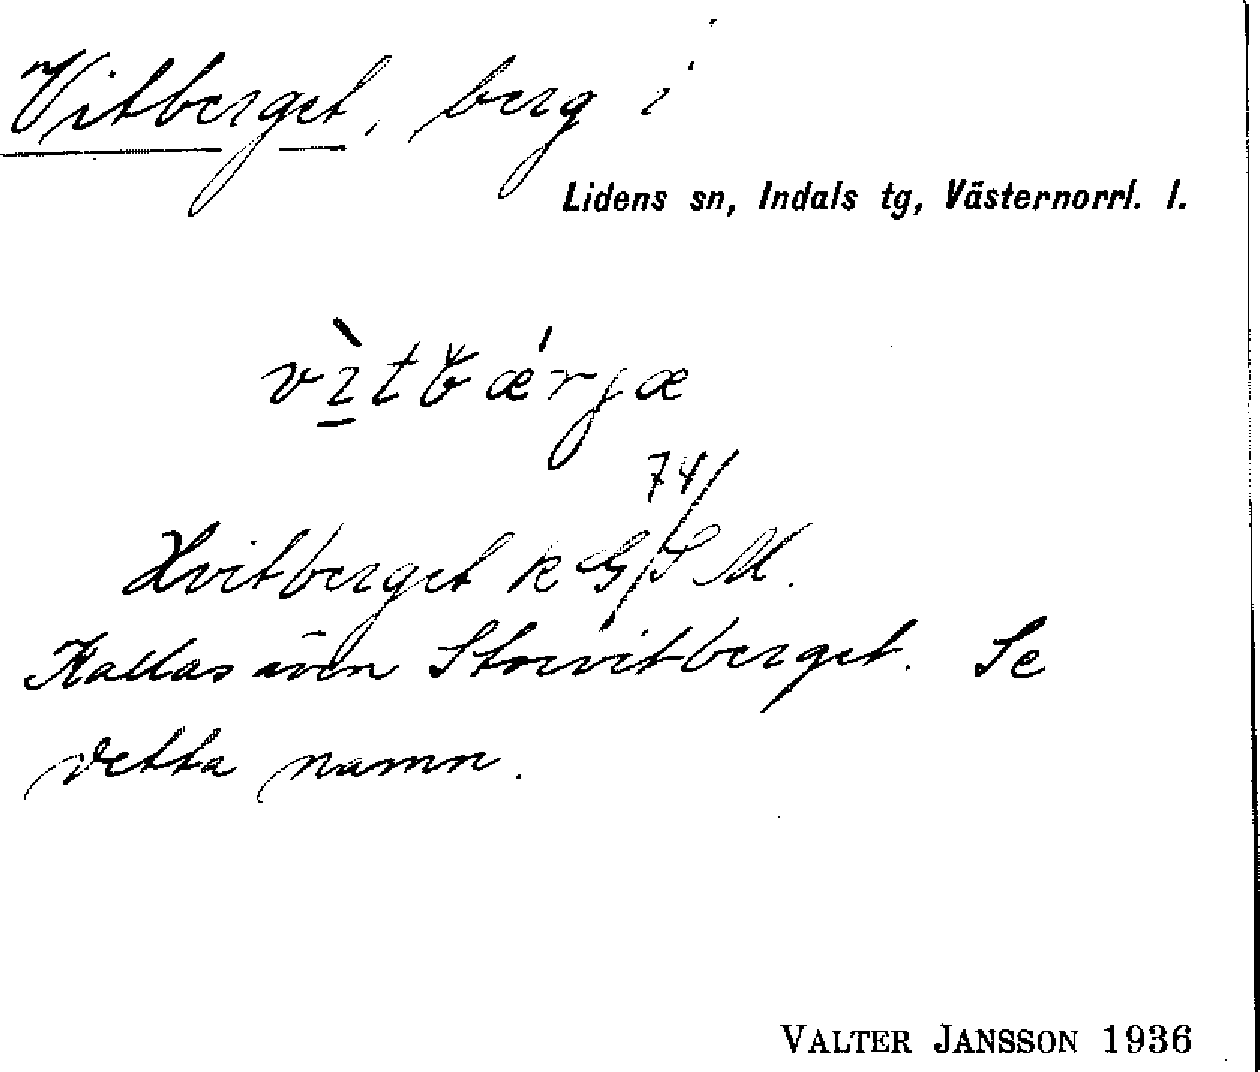 Vitberget, berg i
Lidens sn, Indals tg, Västernorrl. l.
Hvitberget k G 74/S M.
Kallas även Storvitberget. Se
detta namn.
VALTER JANSSON 1936